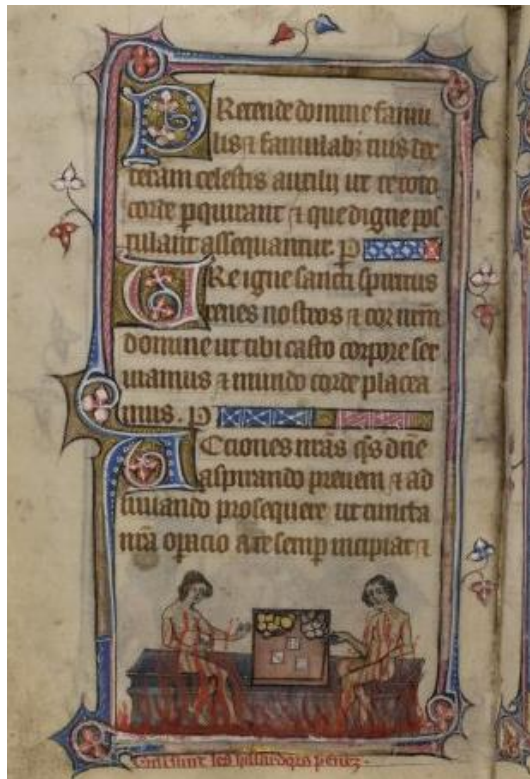 PRetende domine famu
lis ⁊ famulabꝫ tuis dex
teram celestis auxilii ut te toto
corde ꝑquirant ⁊ que digne pos
tulant assequantur. P
URe igne sancti spiritus
renes nostros ⁊ cor nr̄m
domine ut tibi casto corpore ser
uiamus ⁊ mundo corde placea
mus. P
ACciones nr̄as qs̄ dn̄e
aspirando preueni ⁊ ad
iuuando prosequere ut cuncta
nr̄a oꝑacio a te semꝑ incipiat ⁊
sunt les penez.